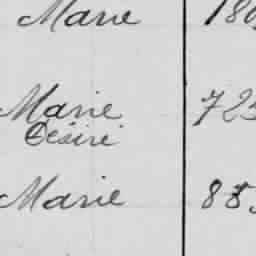 Marie 180
Marie 725
Désiré
Marie 885